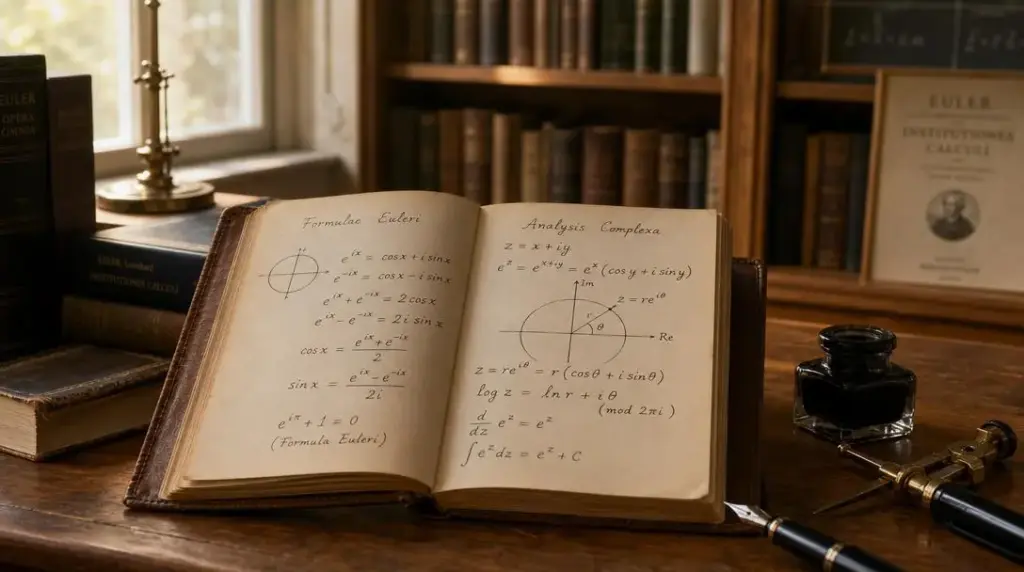 EULER
OPERA
OMNIA
INSTITUTIONES CALCULI
Formulae Euleri
e^{ix} = cos x + i sin x
e^{-ix} = cos x - i sin x
e^{ix} + e^{-ix} = 2 cos x
e^{ix} - e^{-ix} = 2 i sin x
cos x = \frac{e^{ix} + e^{-ix}}{2}
sin x = \frac{e^{ix} - e^{-ix}}{2i}
e^{iπ} + 1 = 0
(Formula Euleri)
Analysis Complexa
z = x + iy
e^z = e^{x+y} = e^x (cos y + i sin y)
Im
z = re^{iθ}
r
θ
Re
z = re^{iθ} = r (cos θ + i sin θ)
log z = ln r + i θ
(mod 2πi)
\frac{d}{dz} e^z = e^z
∫ e^z dz = e^z + C
EULER
INSTITUTIONES
CALCULI